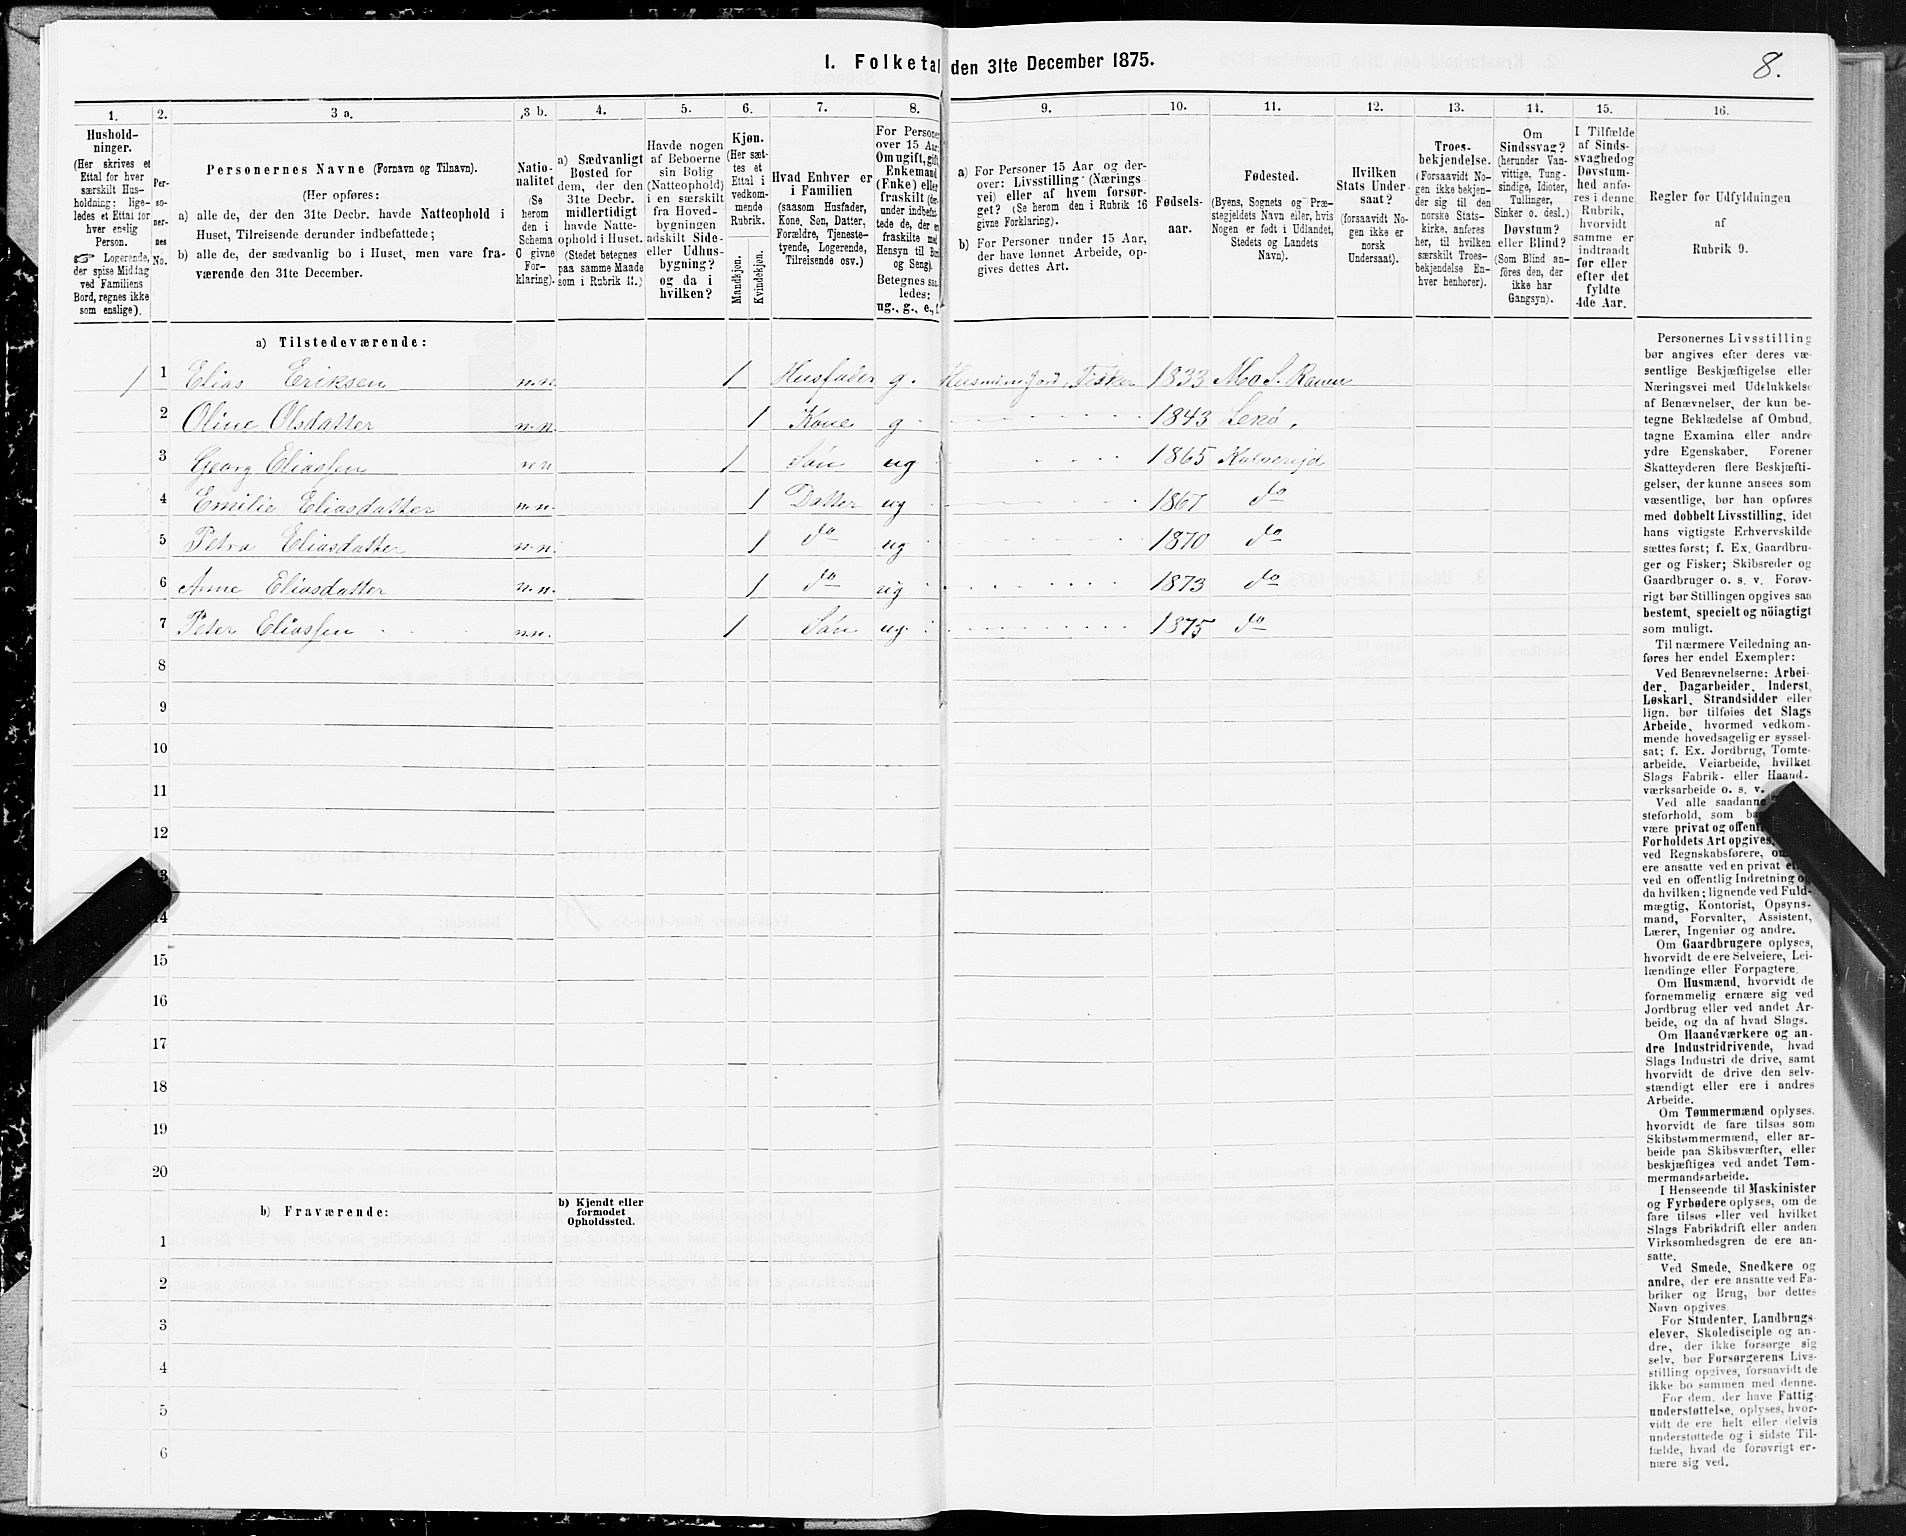 I. Folketal den 31te December 1875.
8.
1. 2. 3 a. 3 b. 4. 5. 6. 7. 8. 9. 10. 11. 12. 13. 14. 15. 16.
Hushold-
ninger.
(Her skrives et
Ettal for hver
særskilt Hus-
holdning; lige-
ledes et Ettal for
hver enslig
Person.
☞ Logerende,
der spise Middag
ved Familiens
Bord, regnes ikke
som enslige).
Per-
so-
ner-
nes
No.
Personernes Navne (Fornavn og Tilnavn).
(Her opføres:
a) alle de, der den 31te Decbr. havde Natteophold i
Huset, Tilreisende derunder indbefattede;
b) alle de, der sædvanlig bo i Huset, men vare fra-
værende den 31te December.
Natio-
nalitet
(Se
herom
den i
Schema
C givne
For-
klaring).
a) Sædvanligt
Bosted for
dem, der den
31te Decbr.
midlertidigt
havde Natte-
ophold i Huset.
(Stedet betegnes
paa samme Maade
som i Rubrik 11.)
Havde nogen
af Beboerne
sin Bolig
(Natteophold)
i en særskilt
fra Hoved-
bygningen
adskilt Side-
eller Udhus-
bygning?
og da i
hvilken?
Kjøn.
(Her sæt-
tes et
Ettal i
vedkom-
mende
Rubrik.
Mandkjøn.
Kvindekjøn.
Hvad Enhver er
i Familien
(saasom Husfader,
Kone, Søn, Datter,
Forældre, Tjeneste-
tyende, Logerende,
Tilreisende osv.)
For Personer
over 15 Aar:
Om ugift, gift,
Enkemand
(Enke) eller
fraskilt (her-
under indbefat-
tede de, der er
fraskilte med
Hensyn til Bord
og Seng).
Betegnes saa-
ledes:
ug., g., e., f.
a) For Personer 15 Aar og der-
over: Livsstilling (Nærings-
vei) eller af hvem forsør-
get? (Se herom den i Rubrik 16
givne Forklaring).
b) For Personer under 15 Aar,
der have lønnet Arbeide, op-
gives dettes Art.
Fødsels-
aar.
Fødested.
(Byens, Sognets og Præ-
stegjeldets Navn eller, hvis
Nogen er født i Udlandet,
Stedets og Landets
Navn).
Hvilken
Stats Under-
saat?
(forsaavidt No-
gen ikke er
norsk
Undersaat).
Troes-
bekjendelse.
(Forsaavidt No-
gen ikke bekjen-
der sig til den
norske Stats-
kirke, anføres
her, til hvilken
særskilt Troes-
bekjendelse En-
hver henhører).
Om
Sindssvag?
(herunder Van-
vittige, Tung-
sindige, Idioter,
Tullinger,
Sinker o. desl.)
Døvstum?
eller Blind?
(Som Blind an-
føres den, der
ikke har
Gangsyn).
I Tilfælde
af Sinds-
svaghed og
Døvstum-
hed anfø-
res i denne
Rubrik,
hvorvidt
samme er
indtraadt
før eller
efter det
fyldte
4de Aar.
Regler for Udfyldningen
af
Rubrik 9.
a) Tilstedeværende:
1 1 Elias Eriksen n.n. 1 Husfader g. Husmand m. Jord, Fisker 1833 Mo S. Ranen
2 Oline Olsdatter n.n 1 Kone g 1843 Lekø.
3 Georg Eliassen n n 1 Søn ug 1865 Kolvereid
4 Emilie Eliasdatter n.n. 1 Datter ug 1867 do
5 Petra Eliasdatter n.n. 1 do ug 1870 do
6 Anne Eliasdatter n.n. 1 do ug 1873 do
7 Peter Eliassen n.n. 1 Søn ug. 1875 do
8
9
10
11
12
13
14
15
16
17
18
19
20
b) Fraværende:
b) Kjendt eller
formodet
Opholdssted.
1
2
3
4
5
6
Personernes Livsstilling
bør angives efter deres væ-
sentlige Beskjæftigelse eller
Næringsvei med Udelukkelse
af Benævnelser, der kun be-
tegne Beklædelse af Ombud,
tagne Examina eller andre
ydre Egenskaber. Forener
Skatteyderen flere Beskjæfti-
gelser, der kunne ansees som
væsentlige, bør han opføres
med dobbelt Livsstilling, idet
hans vigtigste Erhvervskilde
sættes først; f. Ex. Gaardbru-
ger og Fisker; Skibsreder og
Gaardbruger o. s. v. Forøv-
rigt bør Stillingen opgives saa
bestemt, specielt og nöiagtigt
som muligt.
Til nærmere Veiledning an-
føres her endel Exempler:
Ved Benævnelserne: Arbei-
der, Dagarbeider, Inderst,
Løskarl, Strandsidder eller
lign. bør tilføies det Slags
Arbeide, hvormed vedkom-
mende hovedsagelig er syssel-
sat; f. Ex. Jordbrug, Tomte-
arbeide, Veiarbeide, hvilket
Slags Fabrik- eller Haand-
værksarbeide o. s. v.
Ved alle saadanne
steforhold, som
være privat og
Forholdets Art opgives,
ved Regnskabsførere,
ere ansatte ved en privat
ved en offentlig Indretning og
da hvilken; lignende ved Fuld-
mægtig, Kontorist, Opsyns-
mand, Forvalter, Assistent,
Lærer, Ingeniør og andre.
Om Gaardbrugere oplyses,
hvorvidt de ere Selveiere, Lei-
lændinge eller Forpagtere.
Om Husmænd, hvorvidt de
fornemmelig ernære sig ved
Jordbrug eller ved andet Ar-
beide, og da af hvad Slags.
Om Haandværkere og an-
dre Industridrivende, hvad
Slags Industri de drive, samt
hvorvidt de drive den selv-
stændigt eller ere i andres
Arbeide.
Om Tømmermænd oplyses,
hvorvidt de fare tilsøs som
Skibstømmermænd, eller ar-
beide paa Skibsværfter, eller
beskjæftiges ved andet Tøm-
mermandsarbeide.
I Henseende til Maskinister
og Fyrbødere oplyses, om de
fare tilsøs eller ved hvilket
Slags Fabrikdrift eller anden
Virksomhedsgren de ere an-
satte.
Ved Smede, Snedkere og
andre, der ere ansatte ved Fa-
briker og Brug, bør dettes
Navn opgives.
For Studenter, Landbrugs-
elever, Skoledisciple og an-
dre, der ikke forsørge sig
selv, bør Forsørgerens Livs-
stilling opgives, forsaavidt de
ikke bo sammen med denne.
For dem, der have Fattig-
understøttelse, oplyses, hvor-
vidt de ere helt eller delvis
understøttede og i sidste Til-
fælde, hvad de forøvrigt er-
nære sig ved.